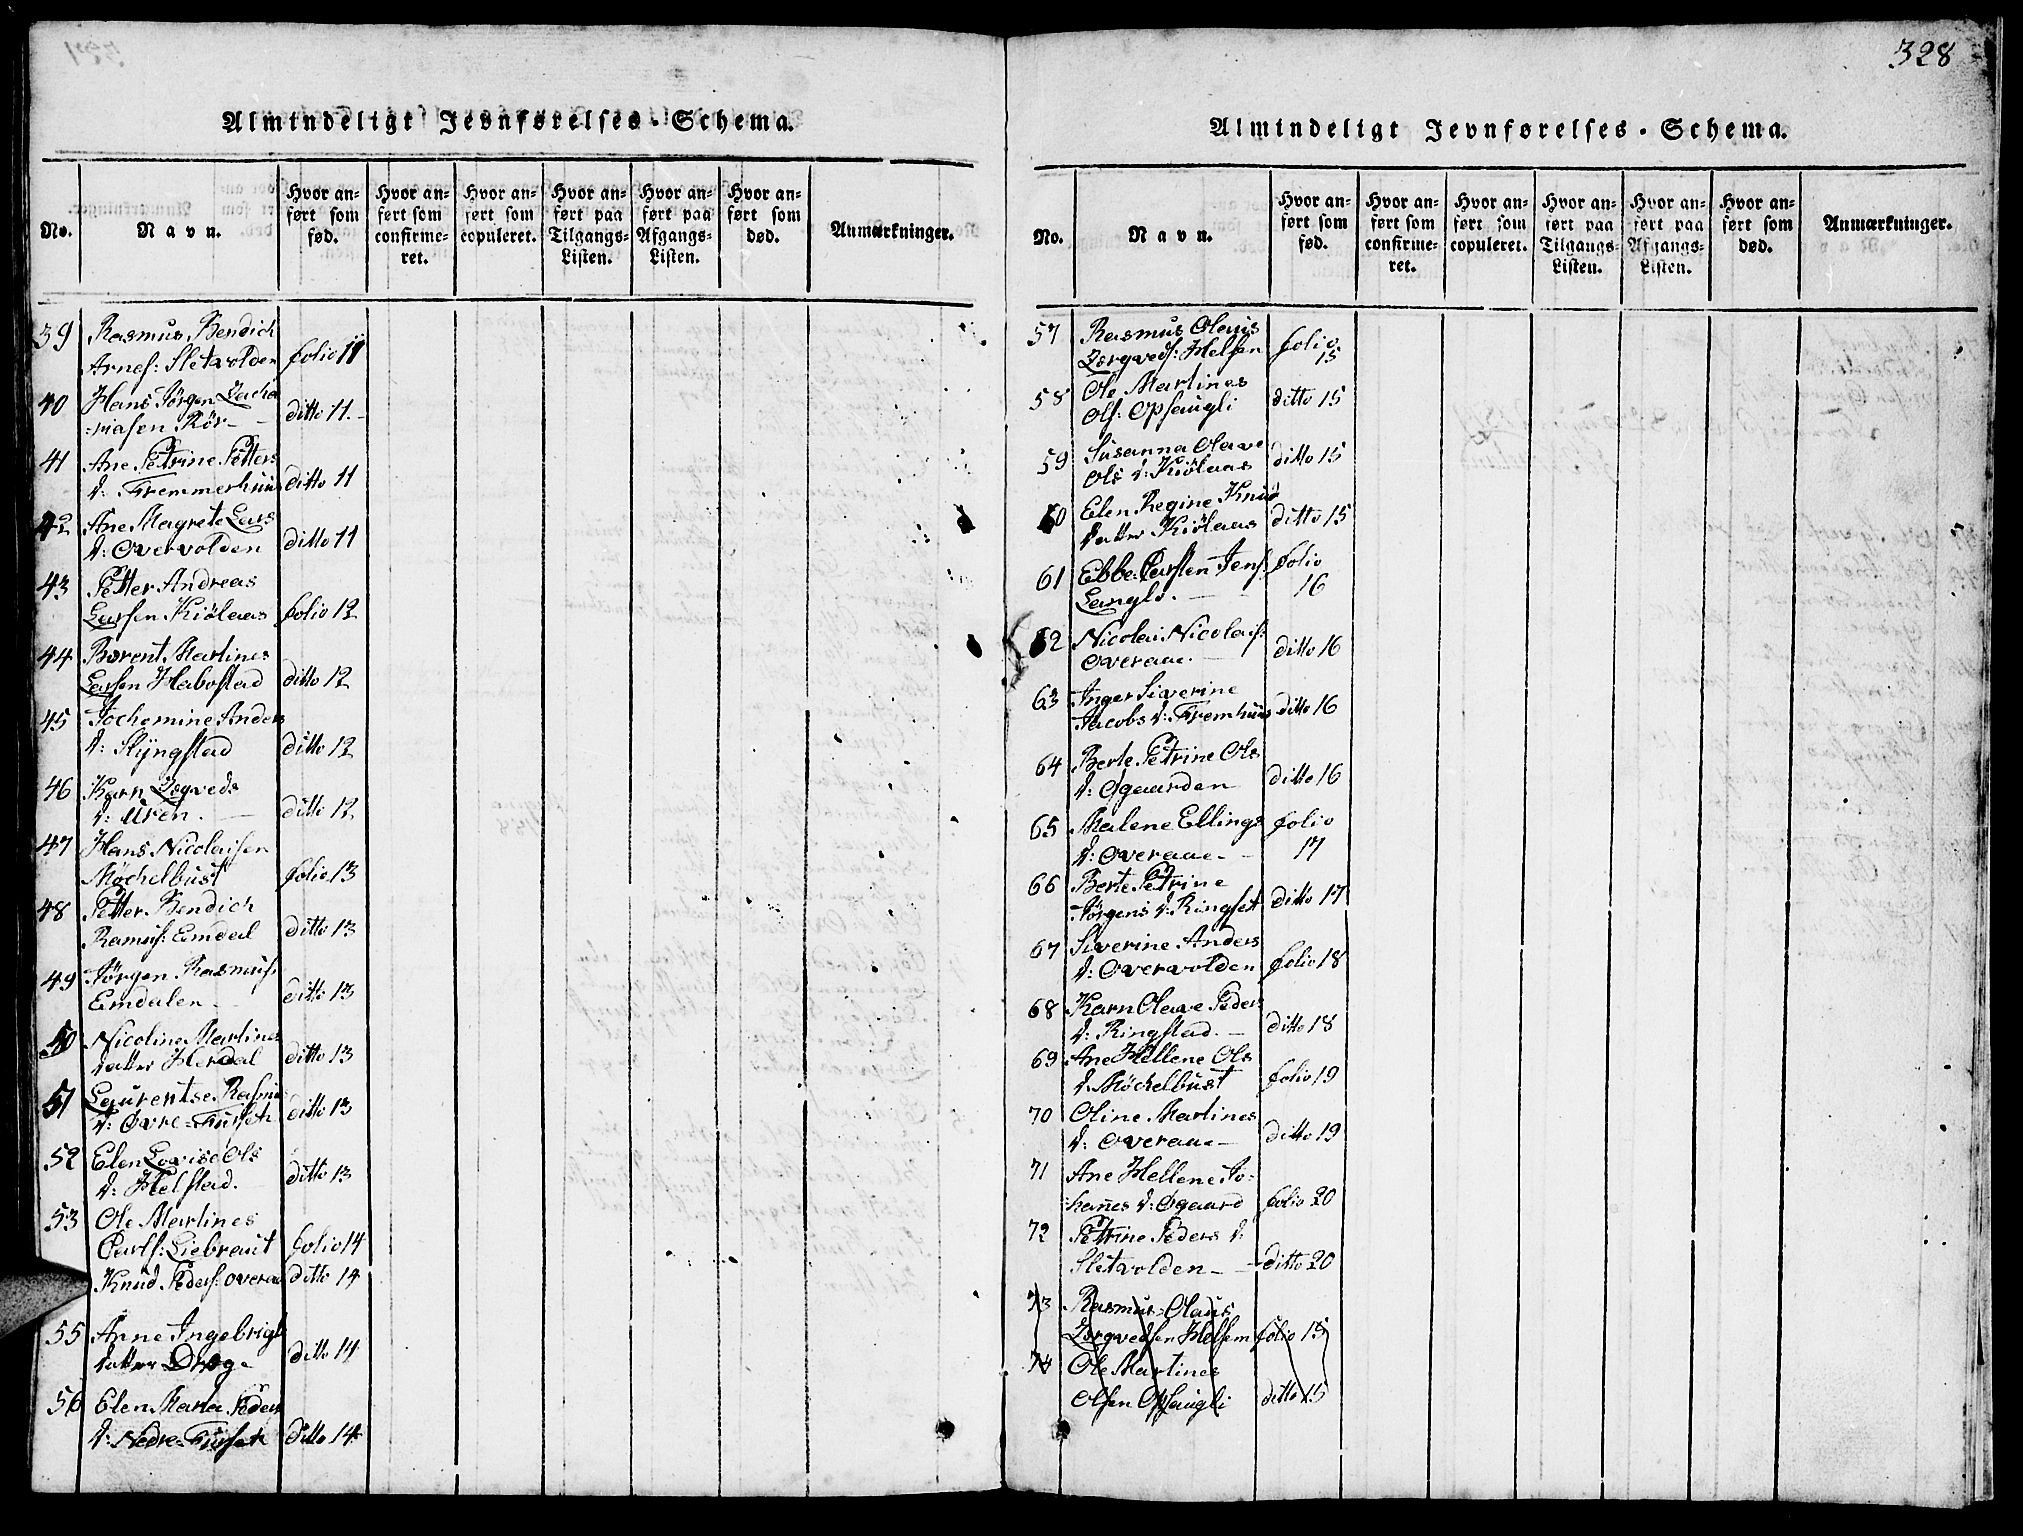 Almindeligt Jevnførelses-Schema.
No.
Navn.
Hvor an-
ført som
fød.
Hvor an-
ført som
confirme-
ret.
Hvor an-
ført som
copuleret.
Hvor an-
ført paa
Tilgangs-
Listen.
Hvor an-
ført paa
Afgangs-
Listen.
Hvor an-
ført som
død.
Anmærkninger.
39 Rasmus Bendich
Arnes: Sletvolden folio 11
40 Hans Jørgen Zacha
=riasen Rör - ditto 11.
41 Ane Petrine Petters
d: Fremmerhuus ditto 11
42 Ane Magrete Lars
d: Overvolden ditto 11
43 Petter Andreas
Larsen Kiölaas folio 12
44 Berent Martines
Larsen Habostad ditto 12
45 Jochemine Anders
d: Slÿngstad ditto 12
46 Karn Zegveds
d: Uren. ditto 12
47 Hans Nicolaisen
Möchelbust folio 13
48 Petter Bendich
Ramus: Emdal ditto 13
49 Jörgen Rasmus:
Emdalen ditto 13
50 Nicoline Martines
datter Herdal ditto 13
51 Laurentse Rasmus
d: Øvre=Furset ditto 13
52 Elen Lovise Ols
d: Helstad. ditto 13
53 Ole Martines
Carls: Liebraut folio 14
Knud Peders: overaa ditto 14
55 Anne Ingebrigt
datter Drege ditto 14
56 Elen Maria Peders
d: Nedre=Furset ditto 14
328
Almindeligt Jevnførelses-Schema.
No.
Navn.
Hvor an-
ført som
fød.
Hvor an-
ført som
confirme-
ret.
Hvor an-
ført som
copuleret.
Hvor an-
ført paa
Tilgangs-
Listen.
Hvor an-
ført paa
Afgangs-
Listen.
Hvor an-
ført som
død.
Anmærkninger.
57 Rasmus Olaus folio
Zergveds: Helsen 15
58 Ole Martines
Ols: Opsaugli ditto 15
59 Susanna Olave
Ols d: Kiölaas ditto 15
60 Elen Regine Knud
datter Kiölaas ditto 15
61 Ebbe Carsten Jens: folio
Langlo. 16
62 Nicolai Nicolais:
Overaae. ditto 16
63 Inger Siverine
Jacobs d: Fremhuus ditto 16
64 Berte Petrine Ols
d: Øgaarden ditto 16
65 Malene Ellings folio
d: Overaae 17
66 Berte Petrine
Jörgens d: Ringset ditto 17
67 Siverine Anders
d: Overvolden folio 18
68 Karn Oleave Peders
d: Ringstad. ditto 18
69 Ane Hellene Ols
d: Möchelbust folio 19
70 Oline Martines
d: Overaae ditto 19
71 Ane Hellene Jo-
hanes d: Øgaard folio 20
72 Petrine Peders d:
Sletvolden ditto 20
73 Rasmus Olaus
Zergvedsen Helsem folio 15
74 Ole Martines
Olsen Opsaugli ditto 15